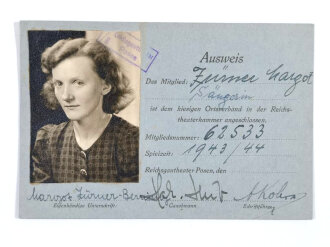 Ausweis
Das Mitglied: Zürner Margot
Sängerin
ist dem hiesigen Ortsverband in der Reichs-
theaterkammer angeschlossen.
Mitgliedsnummer: 62533
Spielzeit: 1943/44
Reichsgautheater Posen, den
Margot Zürner
Eigenhändige Unterschrift: